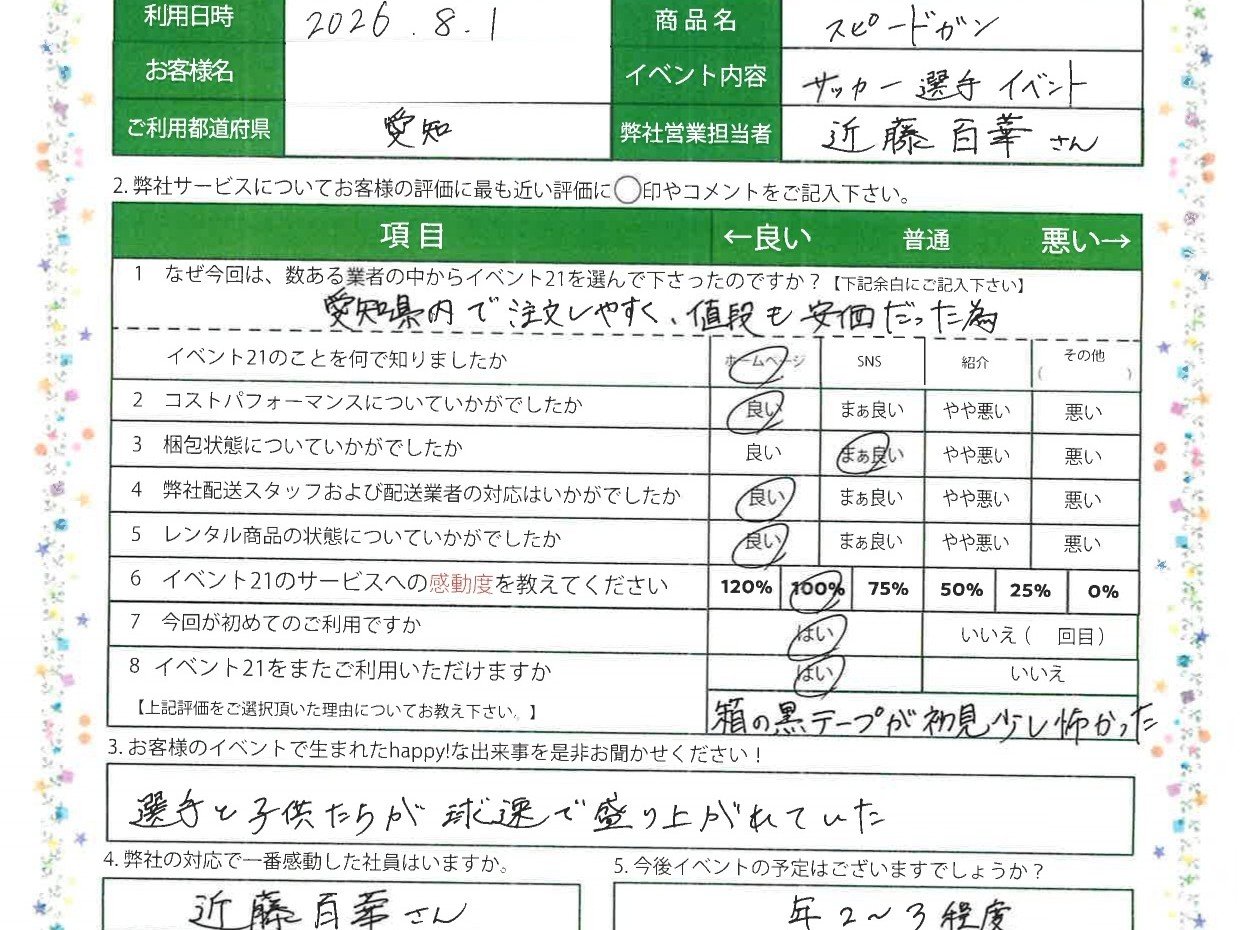 利用日時 2026.8.1 商品名 スピードガン
お客様名 イベント内容 サッカー選手イベント
ご利用都道府県 愛知 弊社営業担当者 近藤百華さん
2. 弊社サービスについてお客様の評価に最も近い評価に◯印やコメントをご記入下さい。
項目 ←良い 普通 悪い→
1 なぜ今回は、数ある業者の中からイベント21を選んで下さったのですか？【下記余白にご記入下さい】
愛知県内で注文しやすく、値段も安価だった為
イベント21のことを何で知りましたか ホームページ SNS 紹介 その他( )
2 コストパフォーマンスについていかがでしたか 良い まぁ良い やや悪い 悪い
3 梱包状態についていかがでしたか 良い まぁ良い やや悪い 悪い
4 弊社配送スタッフおよび配送業者の対応はいかがでしたか 良い まぁ良い やや悪い 悪い
5 レンタル商品の状態についていかがでしたか 良い まぁ良い やや悪い 悪い
6 イベント21のサービスへの感動度を教えてください 120% 100% 75% 50% 25% 0%
7 今回が初めてのご利用ですか はい いいえ( 回目)
8 イベント21をまたご利用いただけますか はい いいえ
【上記評価をご選択頂いた理由についてお教え下さい。】 箱の黒テープが初見、少し怖かった
3. お客様のイベントで生まれたhappy!な出来事を是非お聞かせください！
選手と子供たちが球速で盛り上がれていた
4. 弊社の対応で一番感動した社員はいますか。 5. 今後イベントの予定はございますでしょうか？
近藤百華さん 年2〜3程度